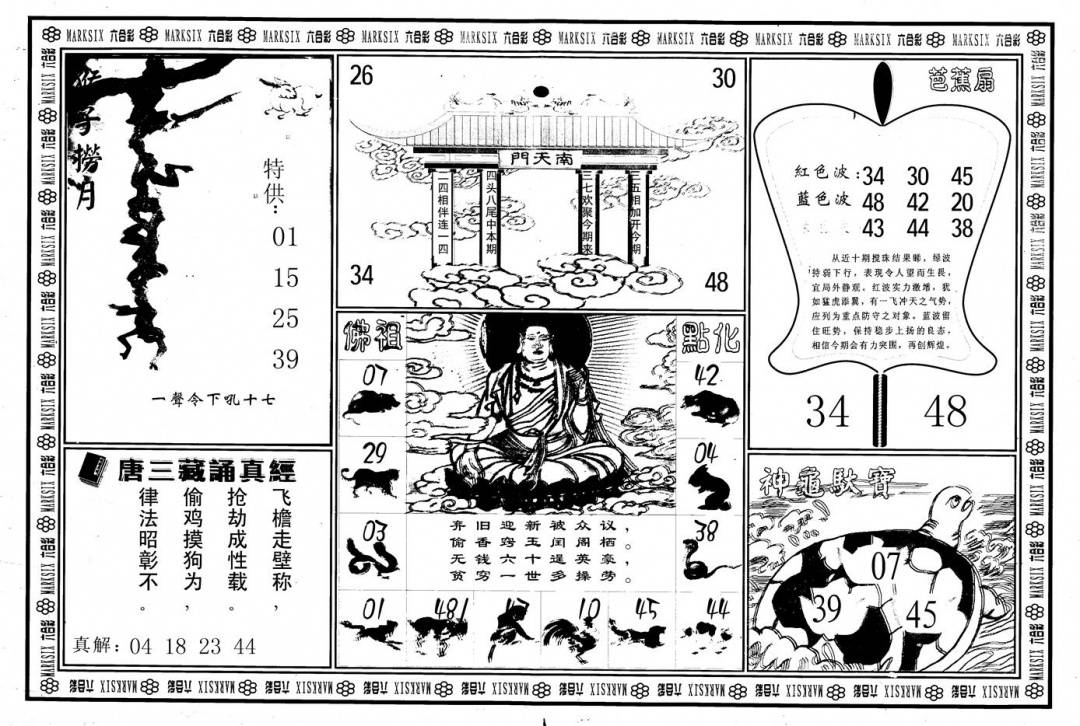 MARKSIX 六合彩 MARKSIX 六合彩 MARKSIX 六合彩 MARKSIX 六合彩 MARKSIX 六合彩 MARKSIX 六合彩 MARKSIX 六合彩 MARKSIX 六合彩 MARKSIX 六合彩 MARKSIX 六合彩
猴子撈月
特供：
01
15
25
39
一聲令下吼十七
唐三藏誦真經
飞檐走壁称，
抢劫成性载。
偷鸡摸狗为，
律法昭彰不。
真解：04 18 23 44
26
30
門天南
二四相伴连一四
四头八尾中本期
三七欢聚今期来
三五相加开今期
34
48
佛祖
點化
07
42
29
04
03
38
弃旧迎新被众议，
偷香窍玉闰阁栖。
无钱六十逞英豪，
贫穷一世多操劳。
01
48
10
45
44
芭蕉扇
紅色波：34 30 45
蓝色波 48 42 20
43 44 38
从近十期搅珠结果睇，绿波
特弱下行，表现令人望而生畏，
宜局外静观。红波实力激增，犹
如猛虎添翼，有一飞冲天之气势，
应列为重点防守之对象。蓝波留
住旺势，保持稳步上扬的良态，
相信今期会有力突围，再创辉煌。
34
48
神龜馱寶
07
39
45